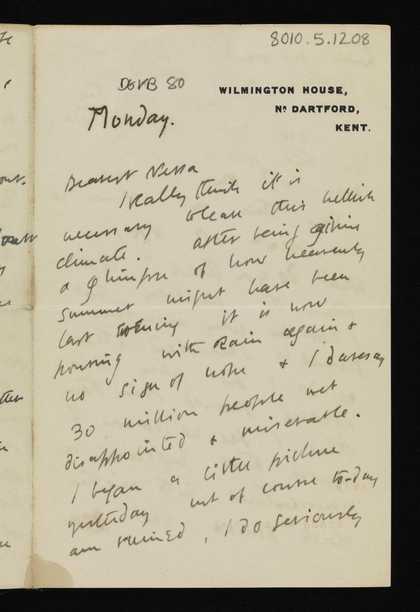 8010.5.1208
DGVB 80
WILMINGTON HOUSE,
Nr DARTFORD,
KENT.
Monday.
Dearest Nessa
I really think it is
necessary to leave this hellish
climate. After being given
a glimpse of how heavenly
summer might have been
last evening it is now
pouring with rain again &
no sign of hope & I daresay
30 million people wet
disappointed & miserable.
I began a little picture
yesterday but of course to-day
am ruined, I do seriously